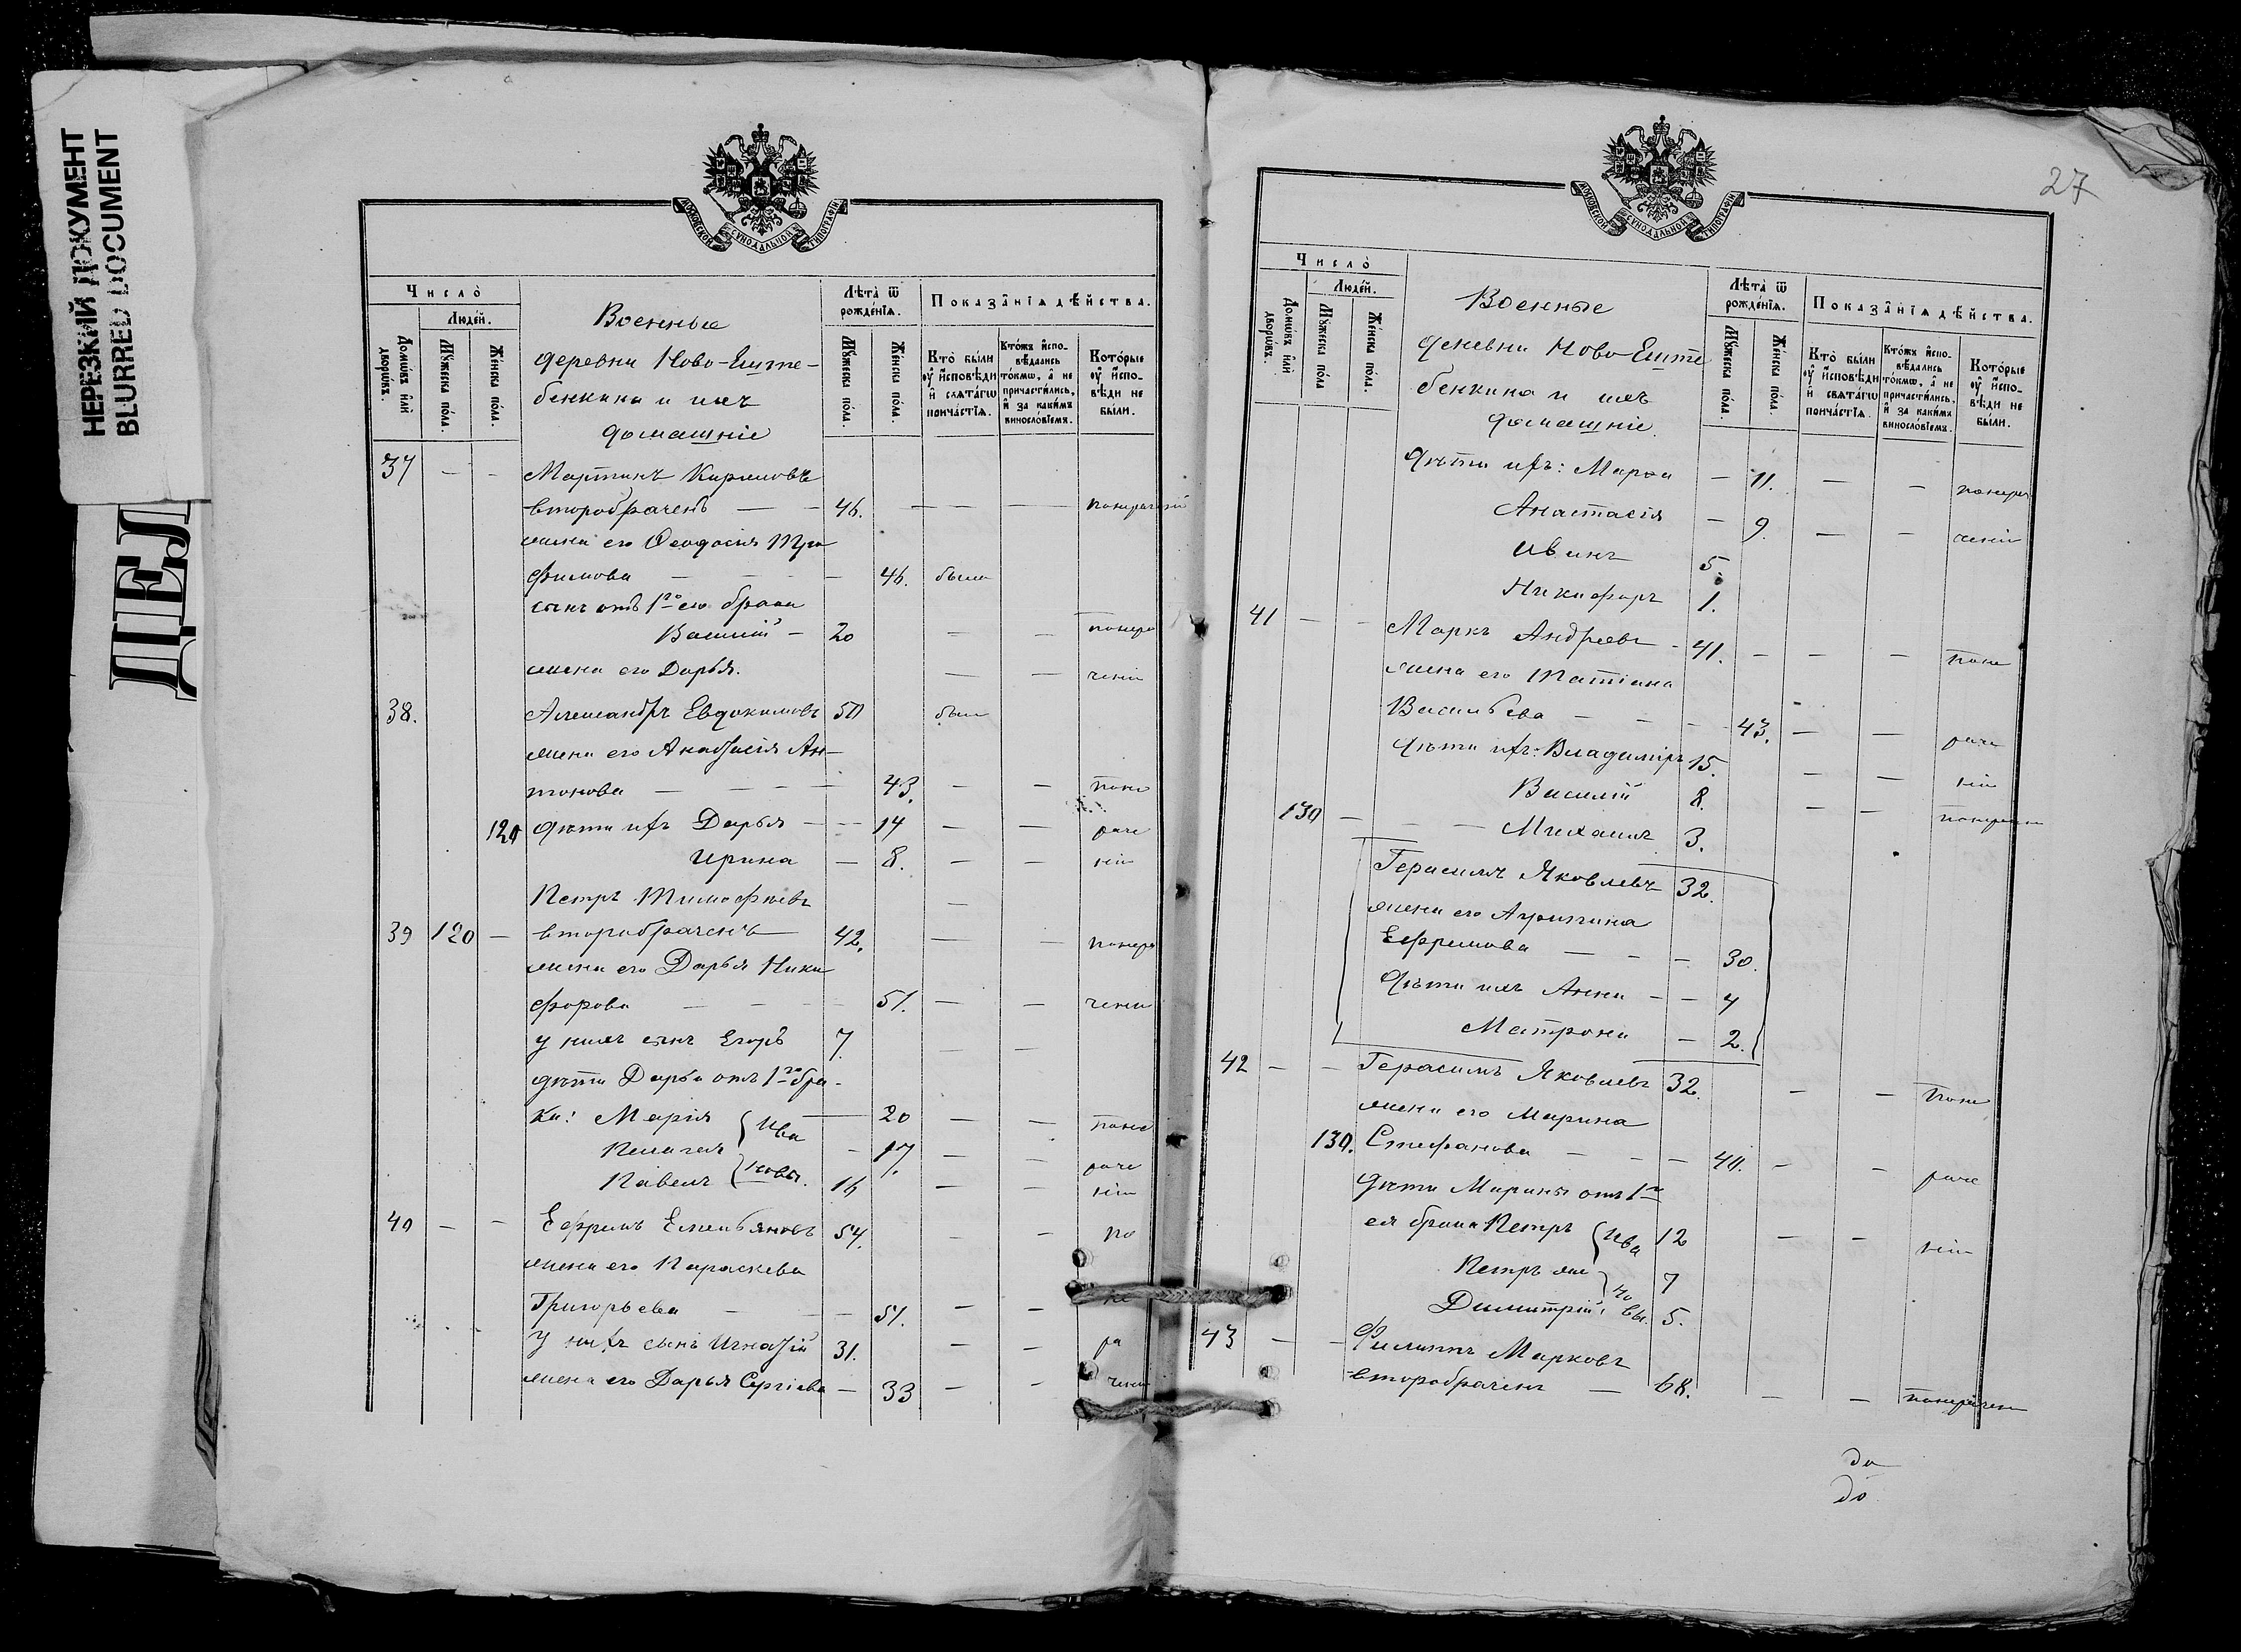 НЕРЕЗКИЙ ДОКУМЕНТ
BLURRED DOCUMENT
ДЕЛ
МОСКОВСКОЙ СѴНОДАЛЬНОЙ ТИПОГРАФІИ
Число̀
Людей.
Домѡвъ илѝ дворѡвъ.
Мꙋжеска пола.
Женска пола.
Военные
деревни Ново-Еште-
бенкина и ихъ
домашніе
Лѣта̀ ѿ рожденїѧ.
Мꙋжеска пола.
Женска пола.
Показанїѧ дѣйства.
Кто̀ были оу҆ исповѣди и свѧтагѡ причастїѧ.
Ктожъ исповѣдались токмѡ, а не причастились, и за какимъ винословїемъ.
Которые оу҆ исповѣди не были.
37 — — Мартинъ Кириловъ
второбраченъ — — 46. — — — — понерачѣнiю
жена его Ѳеодосія Тро
фимова — — — — 46. была
сынъ отъ 1го его брака
Василій — 20 — — понера
жена его Дарья. — — ченію
38. Александръ Евдокимовъ 50 былъ
жена его Анастасія Ан-
тонова — — — — 43. — — поне
120 дѣти ихъ Дарья — — 14 — — раче
Ирина — 8. — — нію
Петръ Тимофѣевъ —
39 120 — второбраченъ 42. — — понера
жена его Дарья Ники
форова — — — — 51. — — ченію
у нихъ сынъ Егоръ 7. — —
дѣти Дарьи отъ 1го бра-
ка: Марія { Ива — 20 — — поне
Пелагея — 17. — — раче
Павелъ { новы. 16 — — нію
40 — — Ефремъ Емельяновъ 54. — — по
жена его Параскева
Григорьева — — — 51. — — не
у нихъ сынъ Игнатій 31. — — ра
жена его Дарья Сергіева — 33 — — ченію
27
МОСКОВСКОЙ СѴНОДАЛЬНОЙ ТИПОГРАФІИ
Число̀
Людей.
Домѡвъ илѝ дворѡвъ.
Мꙋжеска пола
Женска пола.
Военные
деневни Ново-Еште
бенкина и ихъ
домашніе
Лѣта̀ ѿ рожденїѧ.
Мꙋжеска пола.
Женска пола.
Показанїѧ дѣйства.
Кто̀ были оу҆ исповѣди и свѧтагѡ причастїѧ.
Ктожъ исповѣдались токмѡ, а не причастились, и за какимъ винословїемъ.
Которые оу҆ исповѣди не были.
Дѣти ихъ: Марѳа — 11. — — понера
Анастасія — 9. — — ченію
Иванъ 5.
Никифоръ 1.
41 — — Маркъ Андреевъ — 41. — — — поне
жена его Татіана
Васильева — — — 43. — — раче
дѣти ихъ: Владиміръ 15. — — нію
Василій 8. — — понерачению
130 — — — Михаилъ 3.
Герасимъ Яковлевъ 32.
жена его Агрипина
Ефремова — — — 30.
дѣти ихъ Анна — — 4
Матрона — 2.
42 — — Герасимъ Яковлевъ 32. — — Поне
жена его Марина
130. Стефанова — — — 40. — — раче
дѣти Марины отъ 1го
ея брака Петръ { Ива 12 — — нію
Петръ же 7
Димитрій { но вы. 5.
43 — — Филиппъ Марковъ
второбраченъ — 68. — — понерачен
до
до